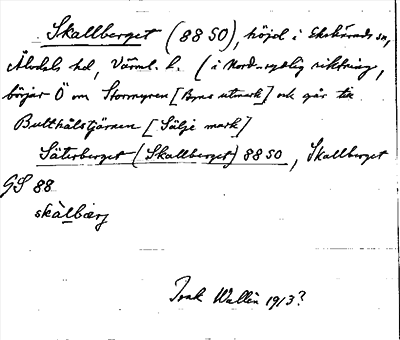 Skallberget (88 SO), höjd i Ekshärads sn,
Älvdals hd, Värml. l. (i Nord-sydlig riktning,
börjar Ö om Stormyren [Byns utmark] och går till
Bulthålstjärnen [Sälje mark]
Säterberget (Skallberget) 88 SO, Skallberget
GS 88
skàlbærj
Isak Wallin 1913?